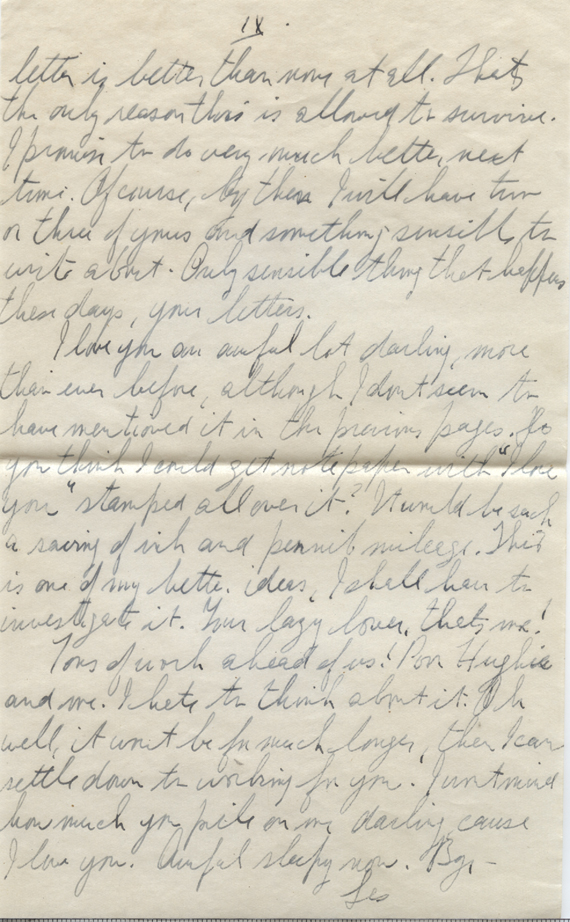 IX.
letter is better than none at all. Thats
the only reason this is allowed to survive.
I promise to do very much better next
time. Of course, by then I will have two
or three of yours and something sensible to
write about. Only sensible thing that happens
these days, your letters.
I love you an awful lot darling, more
than ever before, although I dont seem to
have mentioned it in the previous pages. Do
you think I could get note paper with "I love
you" stamped all over it? It would be such
a saving of ink and pencil mileage. This
is one of my better ideas, I shall have to
investigate it. Your lazy lover, thats me!
Tons of work ahead of us! Poor Hughie
and me. I hate to think about it. Oh
well, it wont be for much longer, then I can
settle down to working for you. I wont mind
how much you pile on me darling cause
I love you. Awful sleepy now. Bye -
Les